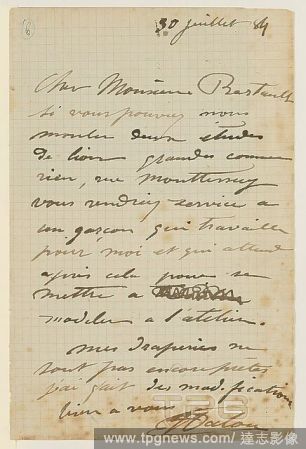 30 juillet 84
Cher Monsieur Bastault
si vous pouviez nous
mouler deux études
de lion grandes comme
rien, rue
vous rendriez service a
un garçon qui travaille
pour moi et qui attend
après cela pour se
mettre a
modeler a l'atelier.
mes draperies ne
sont pas encore prêtes
j'ai fait des modifications
bien a vous
J Dalou
TPG
www.tpgnews.com/達志影像